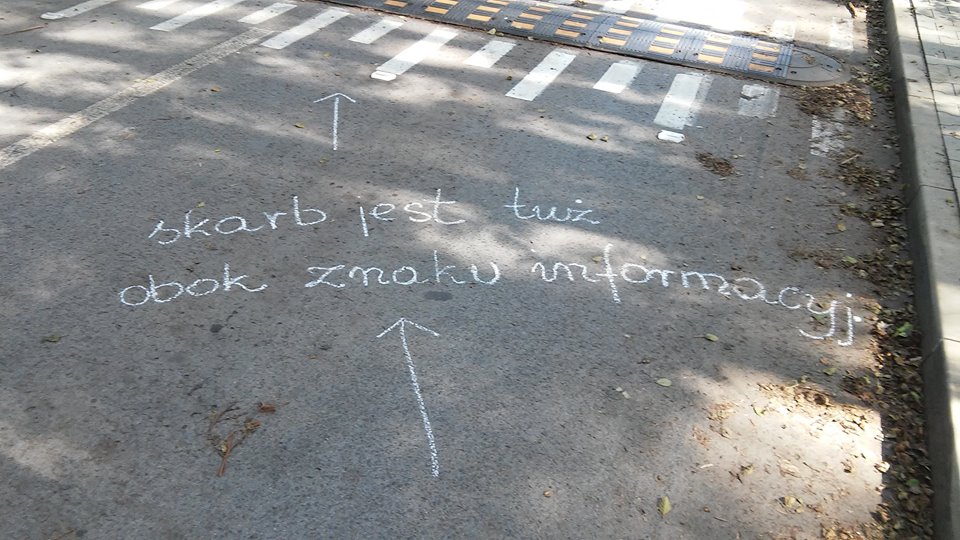 skarb jest tuż
obok znaku informacyj